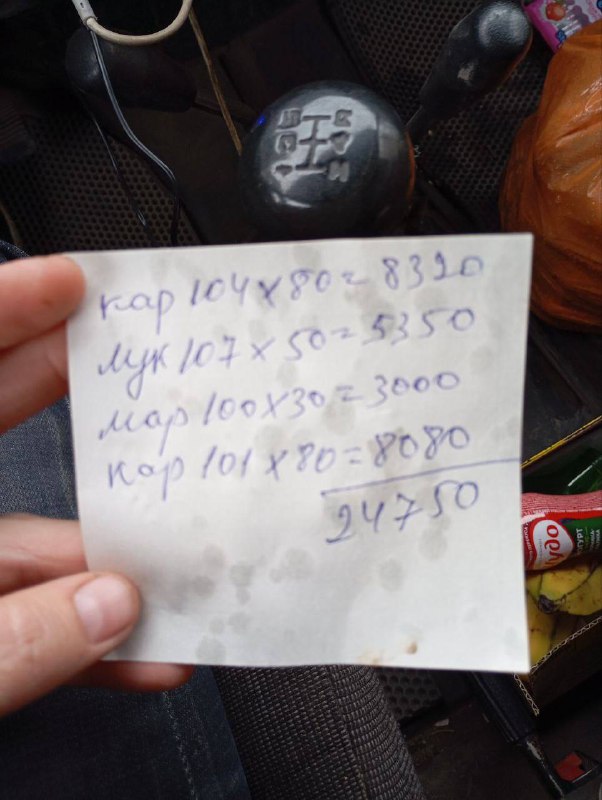 кар 104 x 80 = 8320
лук 107 x 50 = 5350
мар 100 x 30 = 3000
кар 101 x 80 = 8080
24750
Чудо